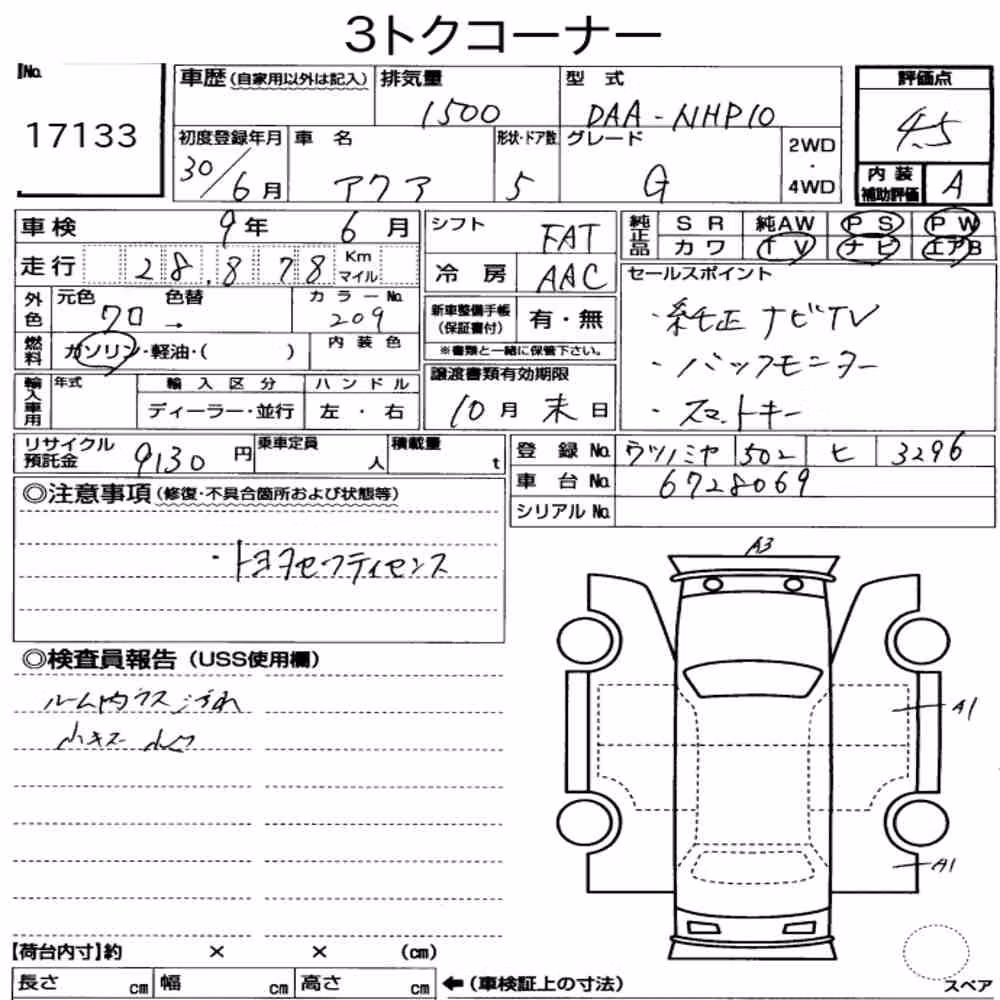 3トクコーナー
No.
17133
車歴 (自家用以外は記入)
排気量 1500
型 式 DAA-NHP10
評価点 4.5
初度登録年月 30/6月
車 名 アクア
形状・ドア数 5
グレード G
2WD ・ 4WD
内装補助評価 A
車検 9年 6月
シフト FAT
純正品 SR 純AW PS PW
カワ TV ナビ エアB
走行 28,878 Km マイル
冷 房 AAC
セールスポイント
外色 元色 クロ 色替 →
カラーNo. 209
新車整備手帳 (保証書付) 有・無
・純正ナビTV
燃料 ガソリン・軽油・( )
内 装 色
※書類と一緒に保管下さい。
・バックモニター
輸入車用 年式 輸 入 区 分 ハ ン ド ル
ディーラー・並行 左 ・ 右
譲渡書類有効期限
10月 末日
・スマートキー
リサイクル預託金 9130 円
乗車定員 人
積載量 t
登 録 No. ウツノミヤ 502 ヒ 3296
車 台 No. 6728069
シリアル No.
◎注意事項 (修復・不具合箇所および状態等)
・トヨタセフティセンス
A3
◎検査員報告 (USS使用欄)
ルーム内ラス汚れ
小キズ 小凹
A1
A1
【荷台内寸】約 × × (cm)
長さ cm 幅 cm 高さ cm ←(車検証上の寸法)
スペア